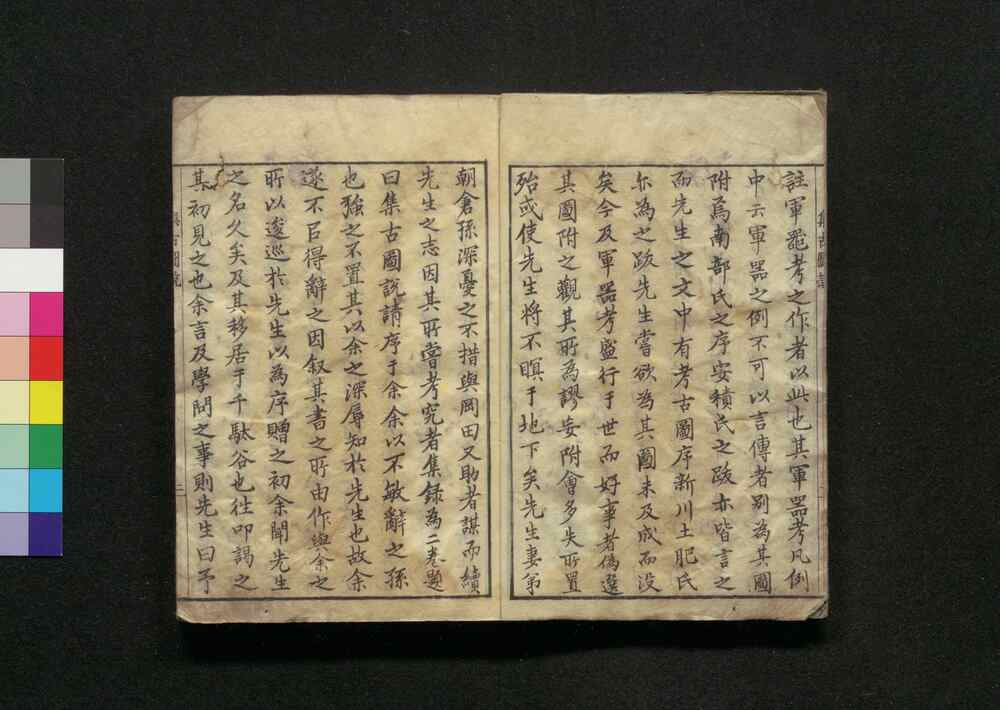 註軍噐考之作者以此也其軍噐考凡例
中云軍噐之例不可以言傳者別為其圖
附焉南部氏之序安積氏之跋亦皆言之
而先生之文中有考古圖序新川土肥氏
尓為之跋先生嘗欲為其圖未及成而没
矣今及軍噐考盛行于世而好事者偽選
其圖附之觀其所為謬妄附會多失所置
殆或使先生將不瞑于地下矣先生妻弟
朝倉孫深憂之不措與岡田又助者謀而續
先生之志因其所嘗考究者集録為二巻題
曰集古圖説請序于余余以不敏辭之孫
也強之不置其以余之深辱知於先生也故余
遂不叵得辭之因叙其書之所由作與余之
所以逡巡於先生以為序贈之初余聞先生
之名久矣及其移居于千駄谷也往叩謁之
其初見之也余言及學問之事則先生曰予
集古圖説
二